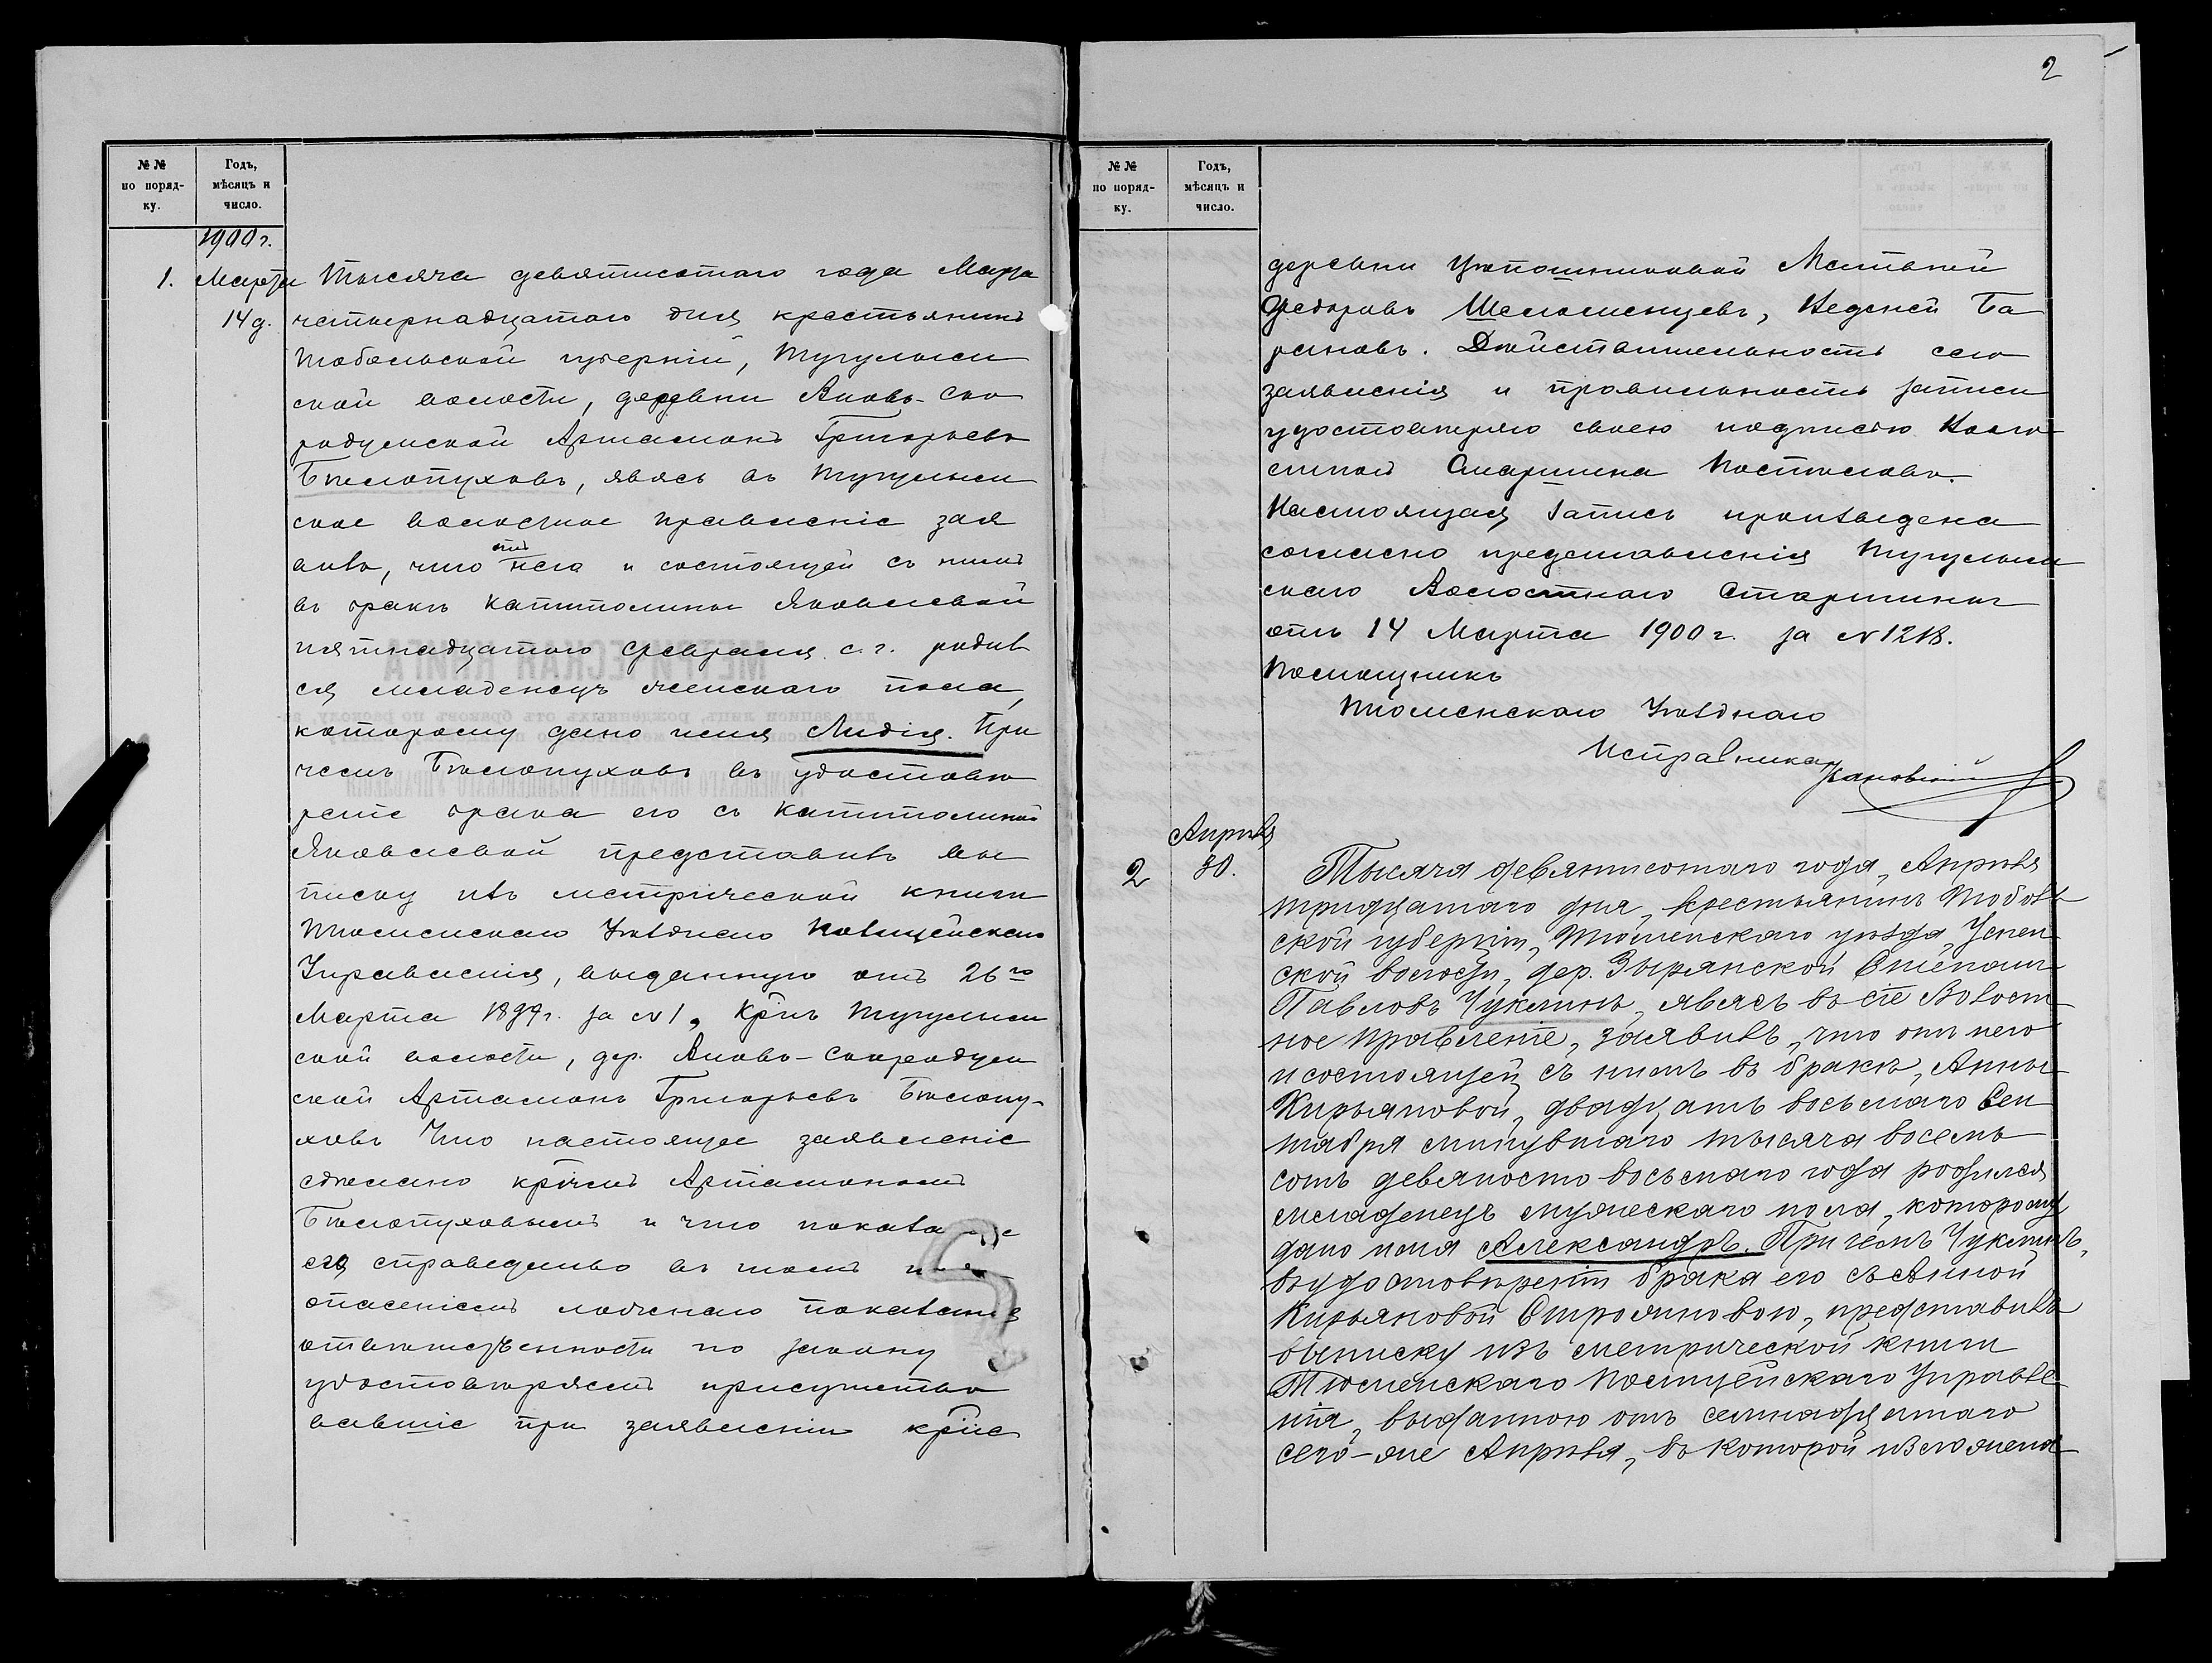 2
№ №
по поряд-
ку.
Годъ,
мѣсяцъ и
число.
1900 г.
1.
Марта
14 д.
Тысяча девятисотаго года Марта
четырнадцатаго дня крестьянинъ
Тобольской губерніи, Тугулым
ской волости, деревни Вновь-Ско
родумской Артамонъ Григорьевъ
Бѣлопуховъ, явясь въ Тугулым
ское волостное правленіе зая
вилъ, что отъ него и состоящей съ нимъ
въ бракѣ Капитолины Яковлевой
пятнадцатаго февраля с. г. родил
ся младенецъ женскаго пола,
которому дано имя Лидія. При
чемъ Бѣлопуховъ въ удостовѣ
реніе брака его съ Капитолиной
Яковлевой представилъ вы
писку изъ метрической книги
Тюменскаго Уѣзднаго Полицейскаго
Управленія, выданную отъ 26го
Марта 1899 г. за № 1, Кр̃нъ Тугулым
ской волости, дер. Вновь-Скородум
ской Артамонъ Григорьевъ Бѣлопу-
ховъ Что настоящее заявленіе
сдѣлано кр̃номъ Артамономъ
Бѣлопуховымъ и что показаніе
его справедливо въ томъ подъ
опасеніемъ ложнаго показанія
отвѣтственности по закону
удостовѣряемъ присутство
вавшіе при заявленіи кр̃не
№ №
по поряд-
ку.
Годъ,
мѣсяцъ и
число.
деревни Матвѣй
Федоровъ Шеломенцевъ, Ба
рановъ. Дѣйствительность сего
заявленія и правильность записи
удостовѣряю своею подписью Воло
стной Старшина Постниковъ.
Настоящая запись произведена
согласно представленія Тугулым
скаго Волостнаго Старшины
отъ 14 Марта 1900 г. за № 1218.
Помощникъ
Тюменскаго Уѣзднаго
Исправника
2
Апрѣля
30.
Тысяча девятисотаго года, Апрѣля
тридцатаго дня, крестьянинъ Тоболь
ской губерніи, Тюменскаго уѣзда, Успен
ской волости, дер. Зырянской Степанъ
Павловъ Чукминъ, явясь въ сіе Волост
ное Правленіе, заявилъ, что отъ него
и состоящей съ нимъ въ бракѣ, Анны
Кирьяновой, двадцать восьмаго Сен
тября минувшаго тысяча восемь
сотъ девяносто восьмаго года родился
младенецъ мужескаго пола, которому
дано имя Александръ. При чемъ Чукминъ,
въ удостовѣреніи брака его съ Анной
Кирьяновой представилъ
выписку изъ метрической книги
Тюменскаго Полицейскаго Управле
нія, выданною отъ семнадцатаго
сего-же Апрѣля, въ которой изложено